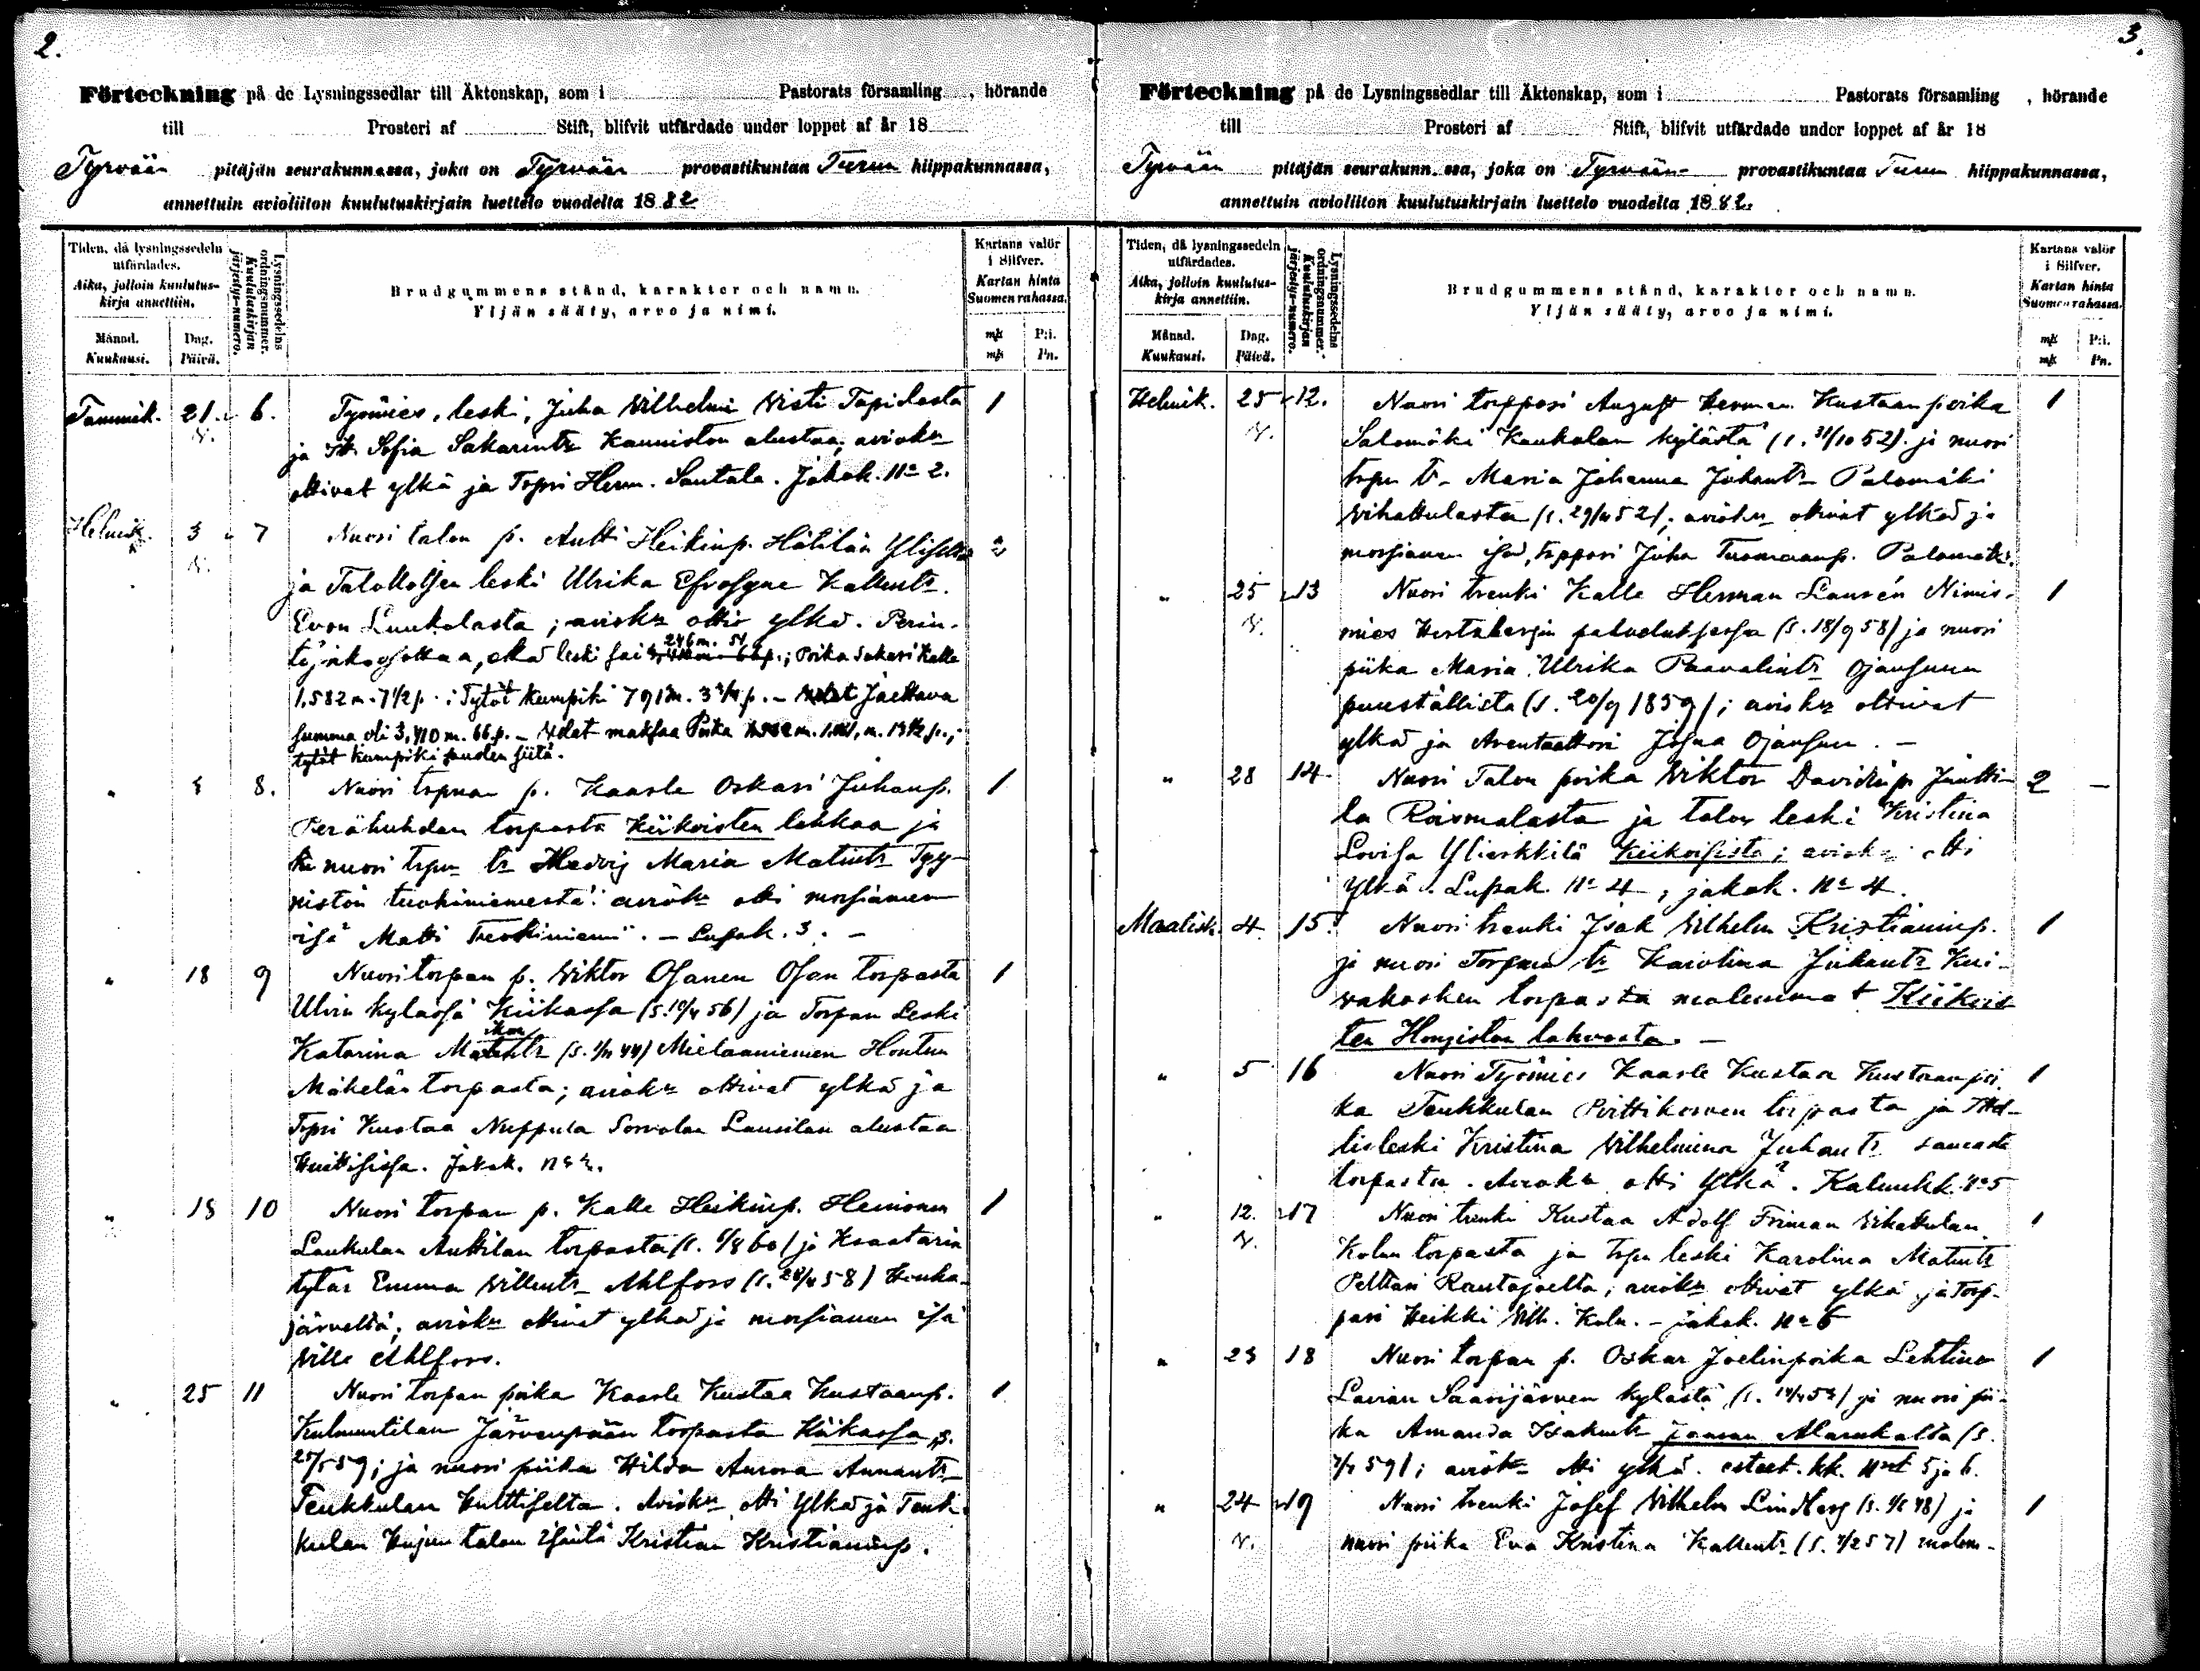 2.
Förteckning på de Lysningssedlar till Äktenskap, som i Pastorats församling, hörande
till Prosteri af Stift, blifvit utfärdade under loppet af år 18
Tyrvään pitäjän seurakunnassa, joka on Tyrvään provastikuntaa Turun hiippakunnassa,
annettuin avioliiton kuulutuskirjain luettelo vuodelta 1882
Tiden, då lysningssedeln utfärdades.
Aika, jolloin kuulutus-kirja annettiin.
Månad.
Kuukausi.
Dag.
Päivä.
Lysningssedelns ordningsnummer.
Kuulutuskirjan järjestys-numero.
Brudgummens stånd, karakter och namn.
Yljän sääty, arvo ja nimi.
Kartans valör i Silfver.
Kartan hinta Suomen rahassa.
mk P:i.
mk Pn.
Tammik. 21. 6. Työmies, leski, Juha Wilhelmi Visti Tapidasta 1
ja Sofia Sakarintr Kauniston alustaa; aviokn
ottivat ylkä ja Topri Herm. Santala. Jakok. No 2.
Helmik. 3 7 Nuori talon p. Antti Heikinp. Hätilän Ylisestä
ja Talollisen leski Ulrika Efrosyne Kallentr.
Evon Luukalasta; aviokn otti ylkä. Perin-
246 m. 54
että leski sai poika Sakari Kalle
1,582 m. 7 1/2 p.; Tytöt kumpiki 791 m. 3 3/4 p. – Jaettava
summa oli 3,410 m. 66 p. – Velat maksaa Poika
tytöt kumpiki puolen siitä.
" 8. Nuori torpan p. Kaarle Oskari Juhanp. 1
Perähuhdan torpasta Kiikoisten lahkaa ja
nuori trpn tr Hedvig Maria Matintr Tyy-
nistön tuohiniemestä: aviokn otti morsiamen
isä Matti Tuohiniemi. – Lupak. 3. –
" 18 9 Nuori torpan p. Viktor Osanen Osan torpasta 1
Ulvin kylässä Kiikassa (s. 10/4 56) ja Torpan Leski
Katarina (s. 1/11 44) Mielaaniemen Hontun
Mäkelän torpasta; aviokn ottivat ylkä ja
Topri Kustaa Nuppula Sorvolan Lausilan alustaa
Huittisissa. Jakok.
" 18 10 Nuori torpan p. Kalle Heikinp. Heinonen 1
Laukulan Anttilan torpasta (s. 6/8 60) ja
tytär Emma Villentr Ahlfors (s. 28/4 58) Houka-
järveltä; aviokn ottivat ylkä ja morsiamen isä
Ville Ahlfors.
" 25 11 Nuori torpan poika Kaarle Kustaa Kustaanp. 1
Kulmuntilan Järvenpään torpasta Kiikassa s.
25/5 59; ja nuori piika Hilda Aurora Annantr
Teukkulan Hulttiselta. Aviokn otti ylkä ja Teuk-
kulan Hujun talon isäntä Kristian Kristianinp.
3.
Förteckning på de Lysningssedlar till Äktenskap, som i Pastorats församling, hörande
till Prosteri af Stift, blifvit utfärdade under loppet af år 18
Tyrvään pitäjän seurakunnassa, joka on Tyrvään provastikuntaa Turun hiippakunnassa,
annettuin avioliiton kuulutuskirjain luettelo vuodelta 1882.
Tiden, då lysningssedeln utfärdades.
Aika, jolloin kuulutus-kirja annettiin.
Månad.
Kuukausi.
Dag.
Päivä.
Lysningssedelns ordningsnummer.
Kuulutuskirjan järjestys-numero.
Brudgummens stånd, karakter och namn.
Yljän sääty, arvo ja nimi.
Kartans valör i Silfver.
Kartan hinta Suomen rahassa.
mk P:i.
mk Pn.
Helmik. 25 12. Nuori torppari August Herman Kustaanpoika 1
Salomäki Kaukalan kylästä (s. 31/10 52) ja nuori
trpn tr Maria Johanna Juhantr Palomäki
Vihattulasta (s. 29/4 52); aviokn ottivat ylkä ja
morsiamen isä, torppari Juha Tuomaanp. Palomäki.
" 25 13 Nuori trenki Kalle Herman Laurén Nimis- 1
mies Hertzbergin palveluksessa (s. 18/9 58) ja nuori
piika Maria Ulrika Paavalintr Ojansuun
puuställista (s. 20/9 1859); aviokn ottivat
ylkä ja Arentaattori Josua Ojansuu. –
" 28 14 Nuori Talon poika Viktor Davidinp. Juntti- 2 –
la Roismalasta ja talon leski Kristina
Lovisa Ylierkkilä Kiikoisista; aviokn otti
Ylkä. Lupak. No 4, jakok. No 4.
Maalisk. 4 15. Nuori trenki Isak Vilhelm Kristianinp. 1
ja nuori Torpan tr Karolina Juhantr Kui-
vakosken torpasta molemmat Kiikois-
ten Hongiston lahkosta. –
" 5 16 Nuori Työmies Kaarle Kustaa Kustaanpoi- 1
ka Teukkulan torpasta ja
lisleski Kristina Vilhelmina Juhantr
torpasta. Aviokn otti Ylkä. No 5
" 12. 17 Nuori trenki Kustaa Adolf Friman Vihattulan 1
Kolun torpasta ja trpn leski Karolina Matintr
Pelttari Rautajoelta; aviokn ottivat ylkä ja torp-
pari Heikki Vilh. Kolu. – jakok. No 6
" 23 18 Nuori torpan p. Oskar Joelinpoika Lehtinen 1
Lavian Saarijärven kylästä ja nuori pii-
ka Amanda Isakintr Alarukalta (s.
59); aviokn otti ylkä. estest. kk. 5 ja 6.
" 24 19 Nuori trenki Josef Vilhelm Lindberg ja 1
nuori piika Eva Kristina Kallentr (s. 4/2 57) molem-